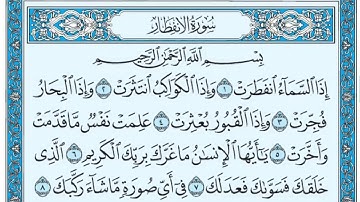 سُورَةُ الانفِطَارِ
بِسْمِ اللَّهِ الرَّحْمَٰنِ الرَّحِيمِ
إِذَا السَّمَاءُ انفَطَرَتْ ١ وَإِذَا الْكَوَاكِبُ انتَثَرَتْ ٢ وَإِذَا الْبِحَارُ
فُجِّرَتْ ٣ وَإِذَا الْقُبُورُ بُعْثِرَتْ ٤ عَلِمَتْ نَفْسٌ مَّا قَدَّمَتْ
وَأَخَّرَتْ ٥ يَا أَيُّهَا الْإِنسَانُ مَا غَرَّكَ بِرَبِّكَ الْكَرِيمِ ٦ الَّذِي
خَلَقَكَ فَسَوَّاكَ فَعَدَلَكَ ٧ فِي أَيِّ صُورَةٍ مَّا شَاءَ رَكَّبَكَ ٨